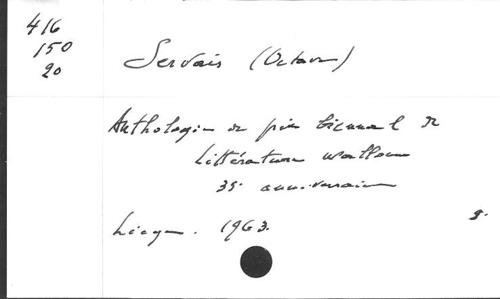 416
150
20
Servais (Octave)
Anthologie du prix biennal de
Littérature wallonne
35e anniversaire
Liège. 1963.
8.